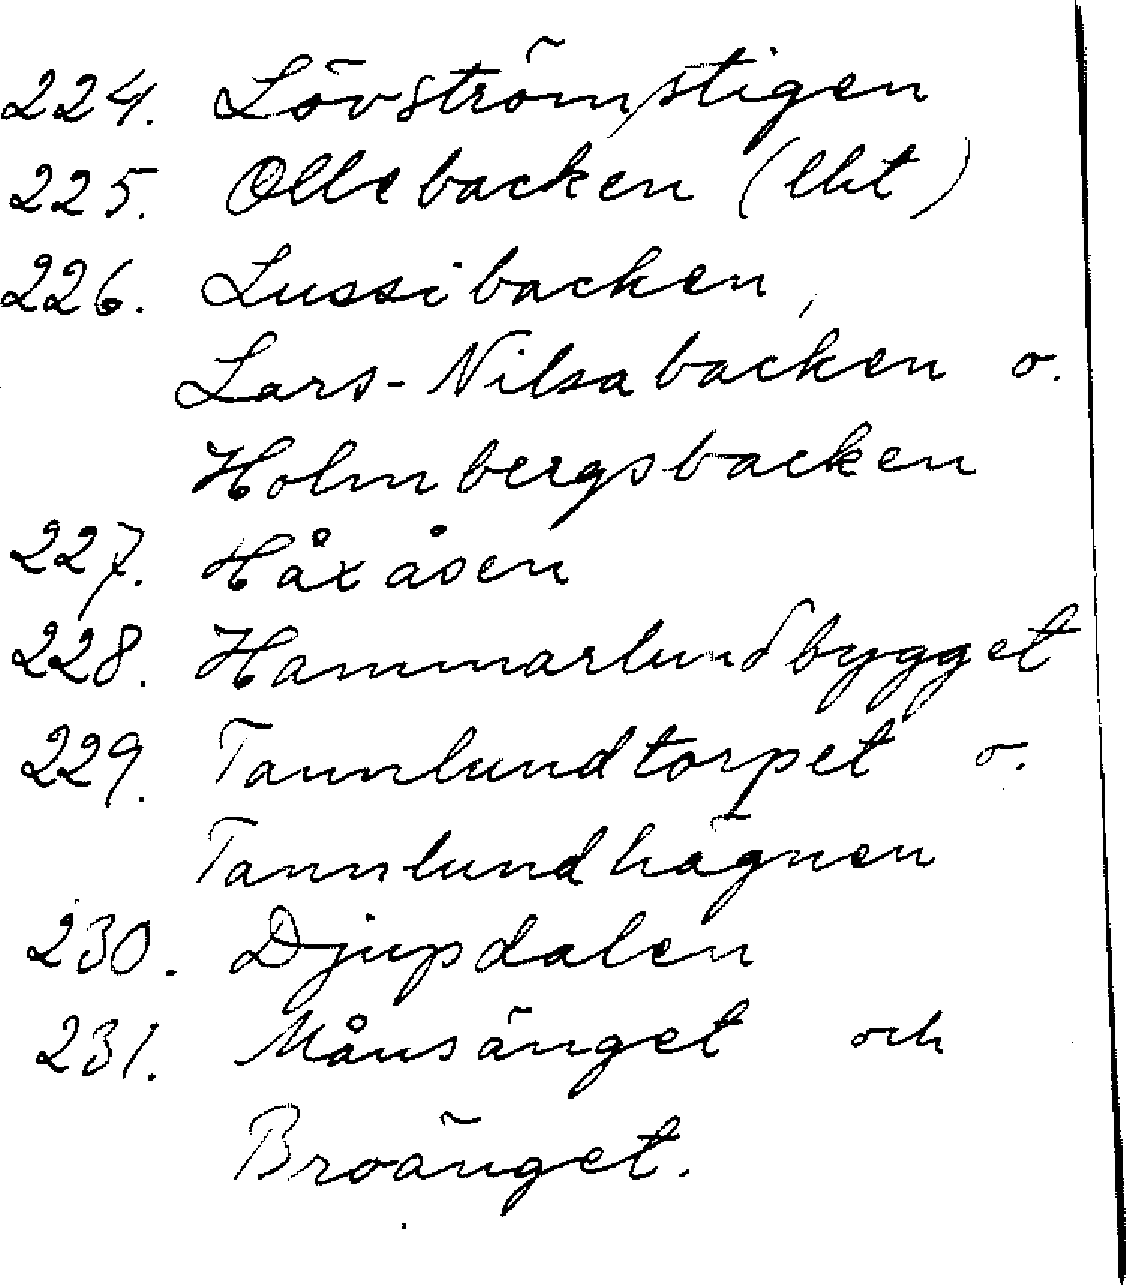 224. Lövströmstigen
225. Ollebacken (lht)
226. Lussibacken,
Lars-Nilsabacken o.
Holmbergsbacken
227. Håxåsen
228. Hammarlundbygget
229. Tannlundtorpet o.
Tannlundhägnen
230. Djupdalen
231. Månsänget och
Broänget.